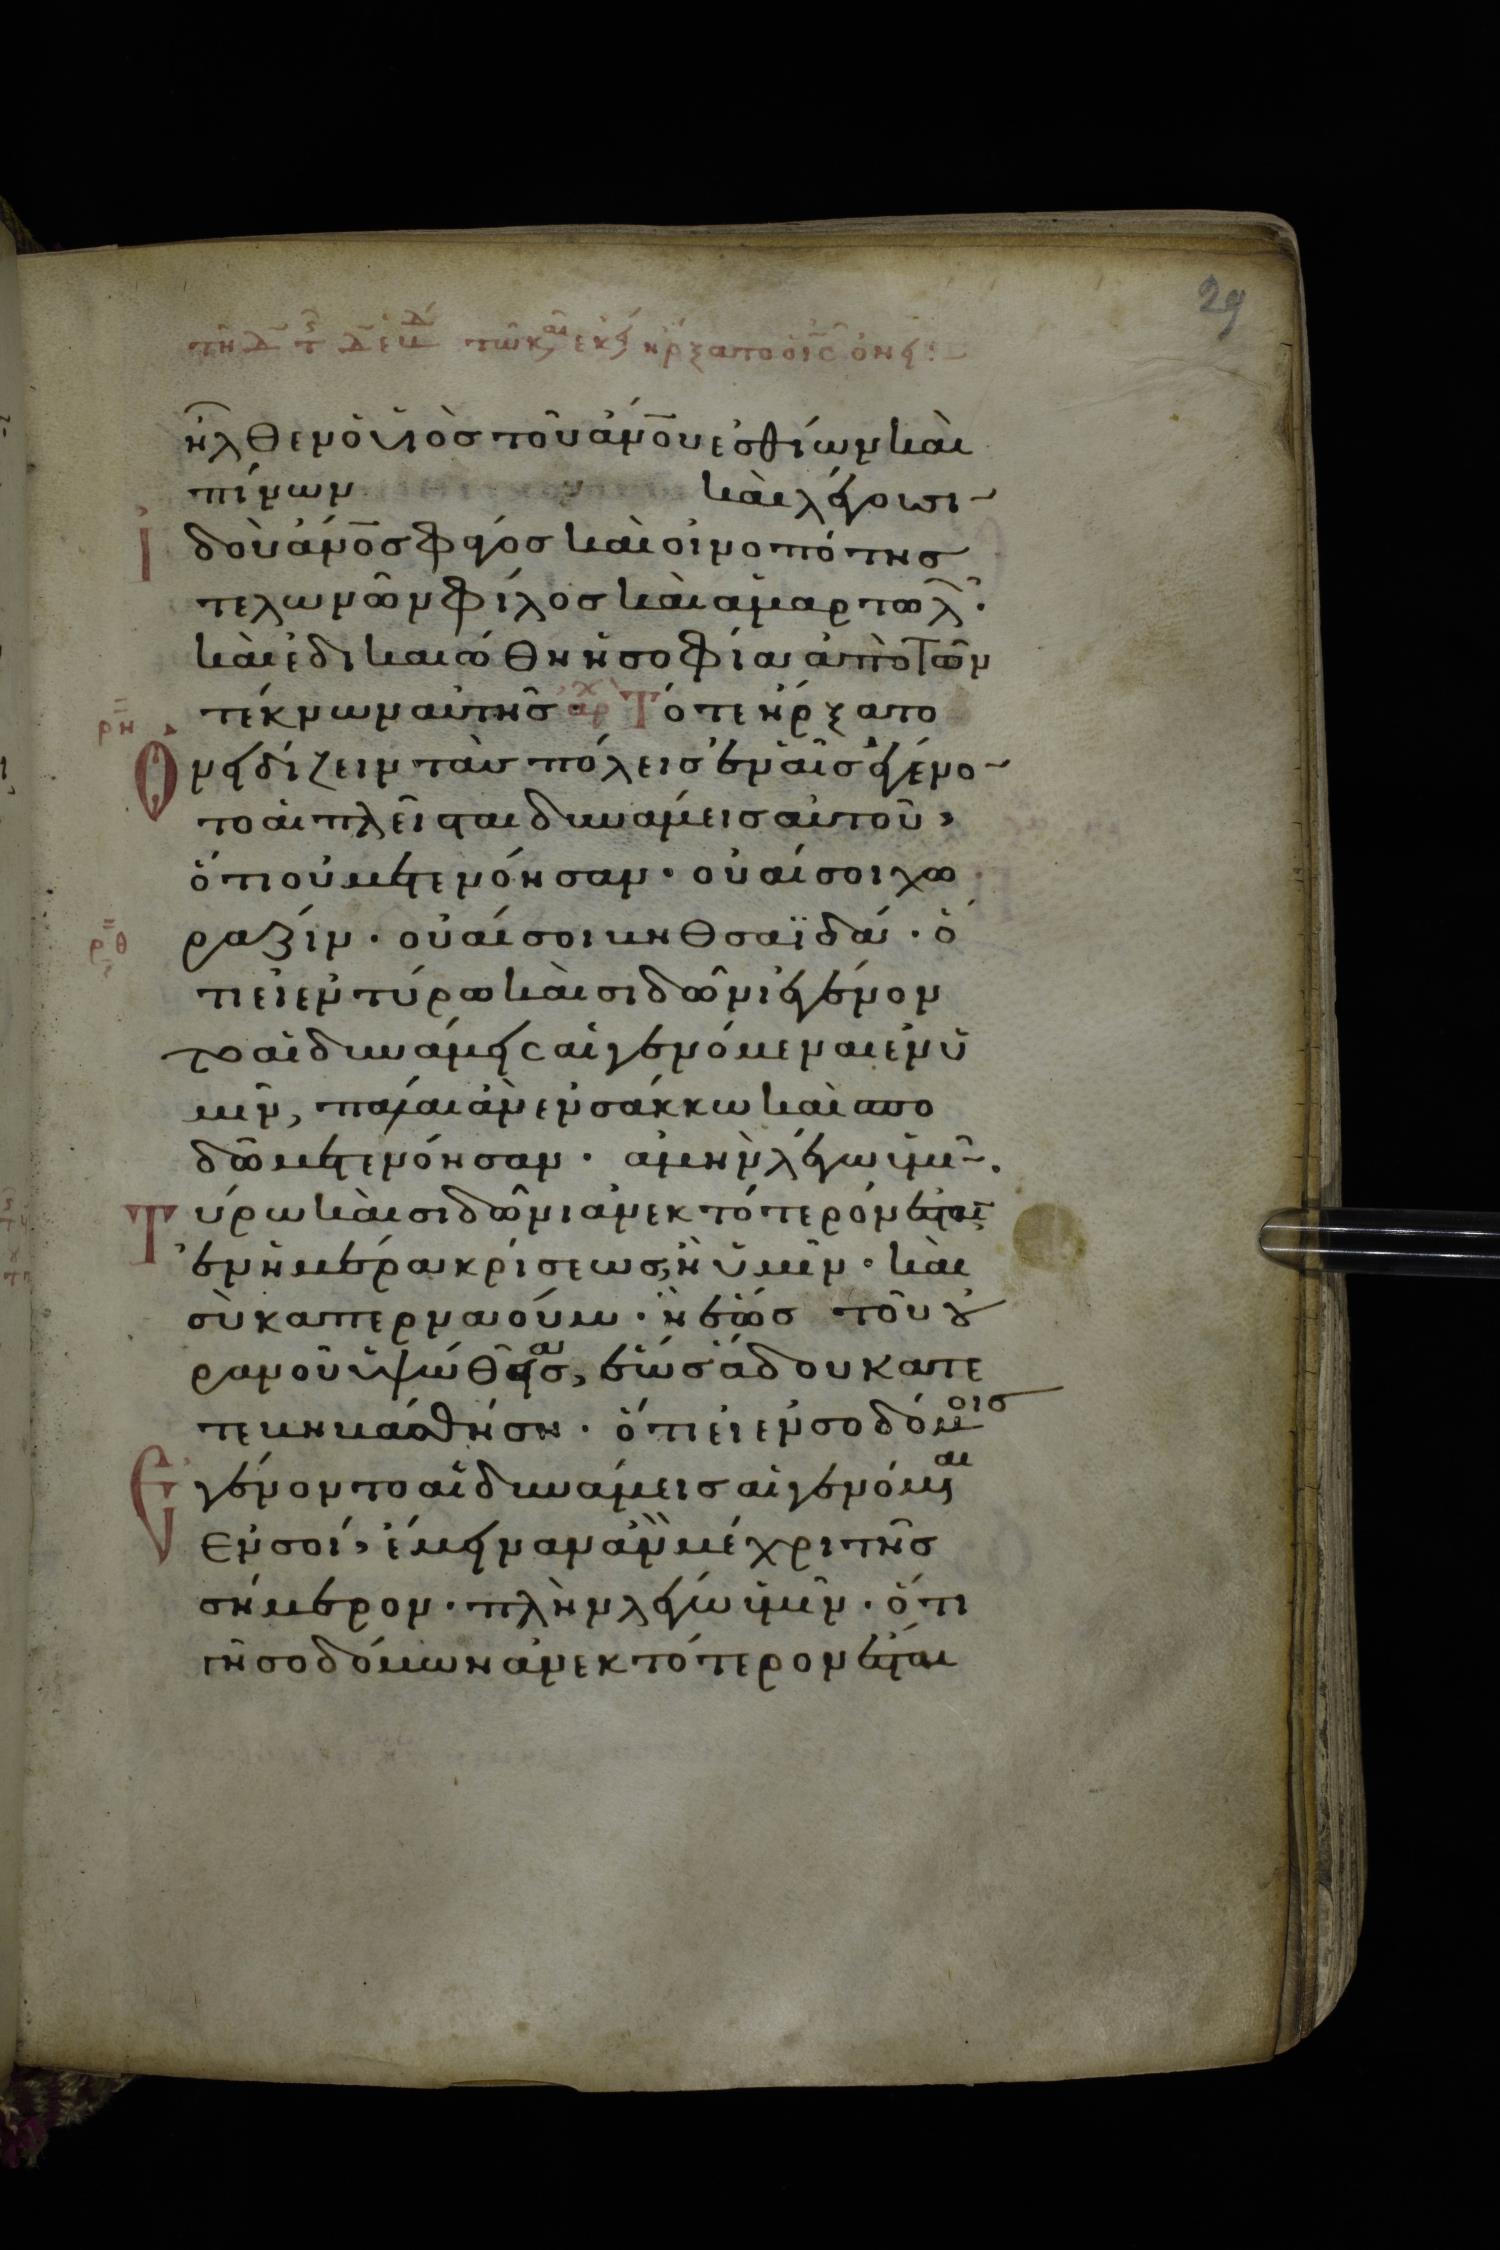 29
τῆ δ τ ς δ ε μ δ τῶ κ αι εκει ηρξατο ὁ ις ὀνει:
ἦλθεν ὁ υἱὸσ τοῦ ἀν̅ο̅υ ἐσθίων καὶ
πίνων καὶ λέγουσι
ϊδοὺ ἄν̅ο̅σ φάγοσ καὶ οἰνοπότησ
τελωνῶν φίλοσ καὶ ἁμαρτωλῶ·
καὶ ἐδικαιώθη ἡ σοφία ἀπὸ τῶν
τέκνων αὐτῆσ· ἀρχ Τότε ἤρξατο
ρη ὀνειδίζειν τὰσ πόλεισ ἐν αἷσ ἐγένο
το αἱ πλεῖσται δυνάμεισ αὐτοῦ,
ὅτι οὐ μετενόησαν· οὐαί σοι χω
ρθ ραζίν· οὐαί σοι βηθσαϊδά· ὅ
τι εἰ ἐν τύρω καὶ σιδῶνι ἐγένον
το αἱ δυνάμεις αἱ γενόμεναι ἐν ὑ
μῖν, πάλαι ἂν ἐν σάκκω καὶ σπο
δῶ μετενόησαν· ἀμὴν λέγω ὑμῖ·
Τύρω καὶ σιδῶνι ἀνεκτότερον ἔσται
ἐν ἡμέρα κρίσεωσ, ἢ ὑμῖν· καὶ
σὺ καπερναούμ· ἡ ἕωσ τοῦ ου
ρανοῦ ὑψωθεῖσα, ἕωσ ἅδου κατε
τε βηβάσθήση· ὅτι εἰ ἐν σοδόμοισ
Ἐγένοντο αἱ δυνάμεισ αἱ γενόμεναι
ἐν σοί, ἔμειναν ἂν μέχρι τῆσ
σήμερον· πλὴν λέγω ὑμῖν· ὅτι
γῆ σοδόμων ἀνεκτότερον ἔσται